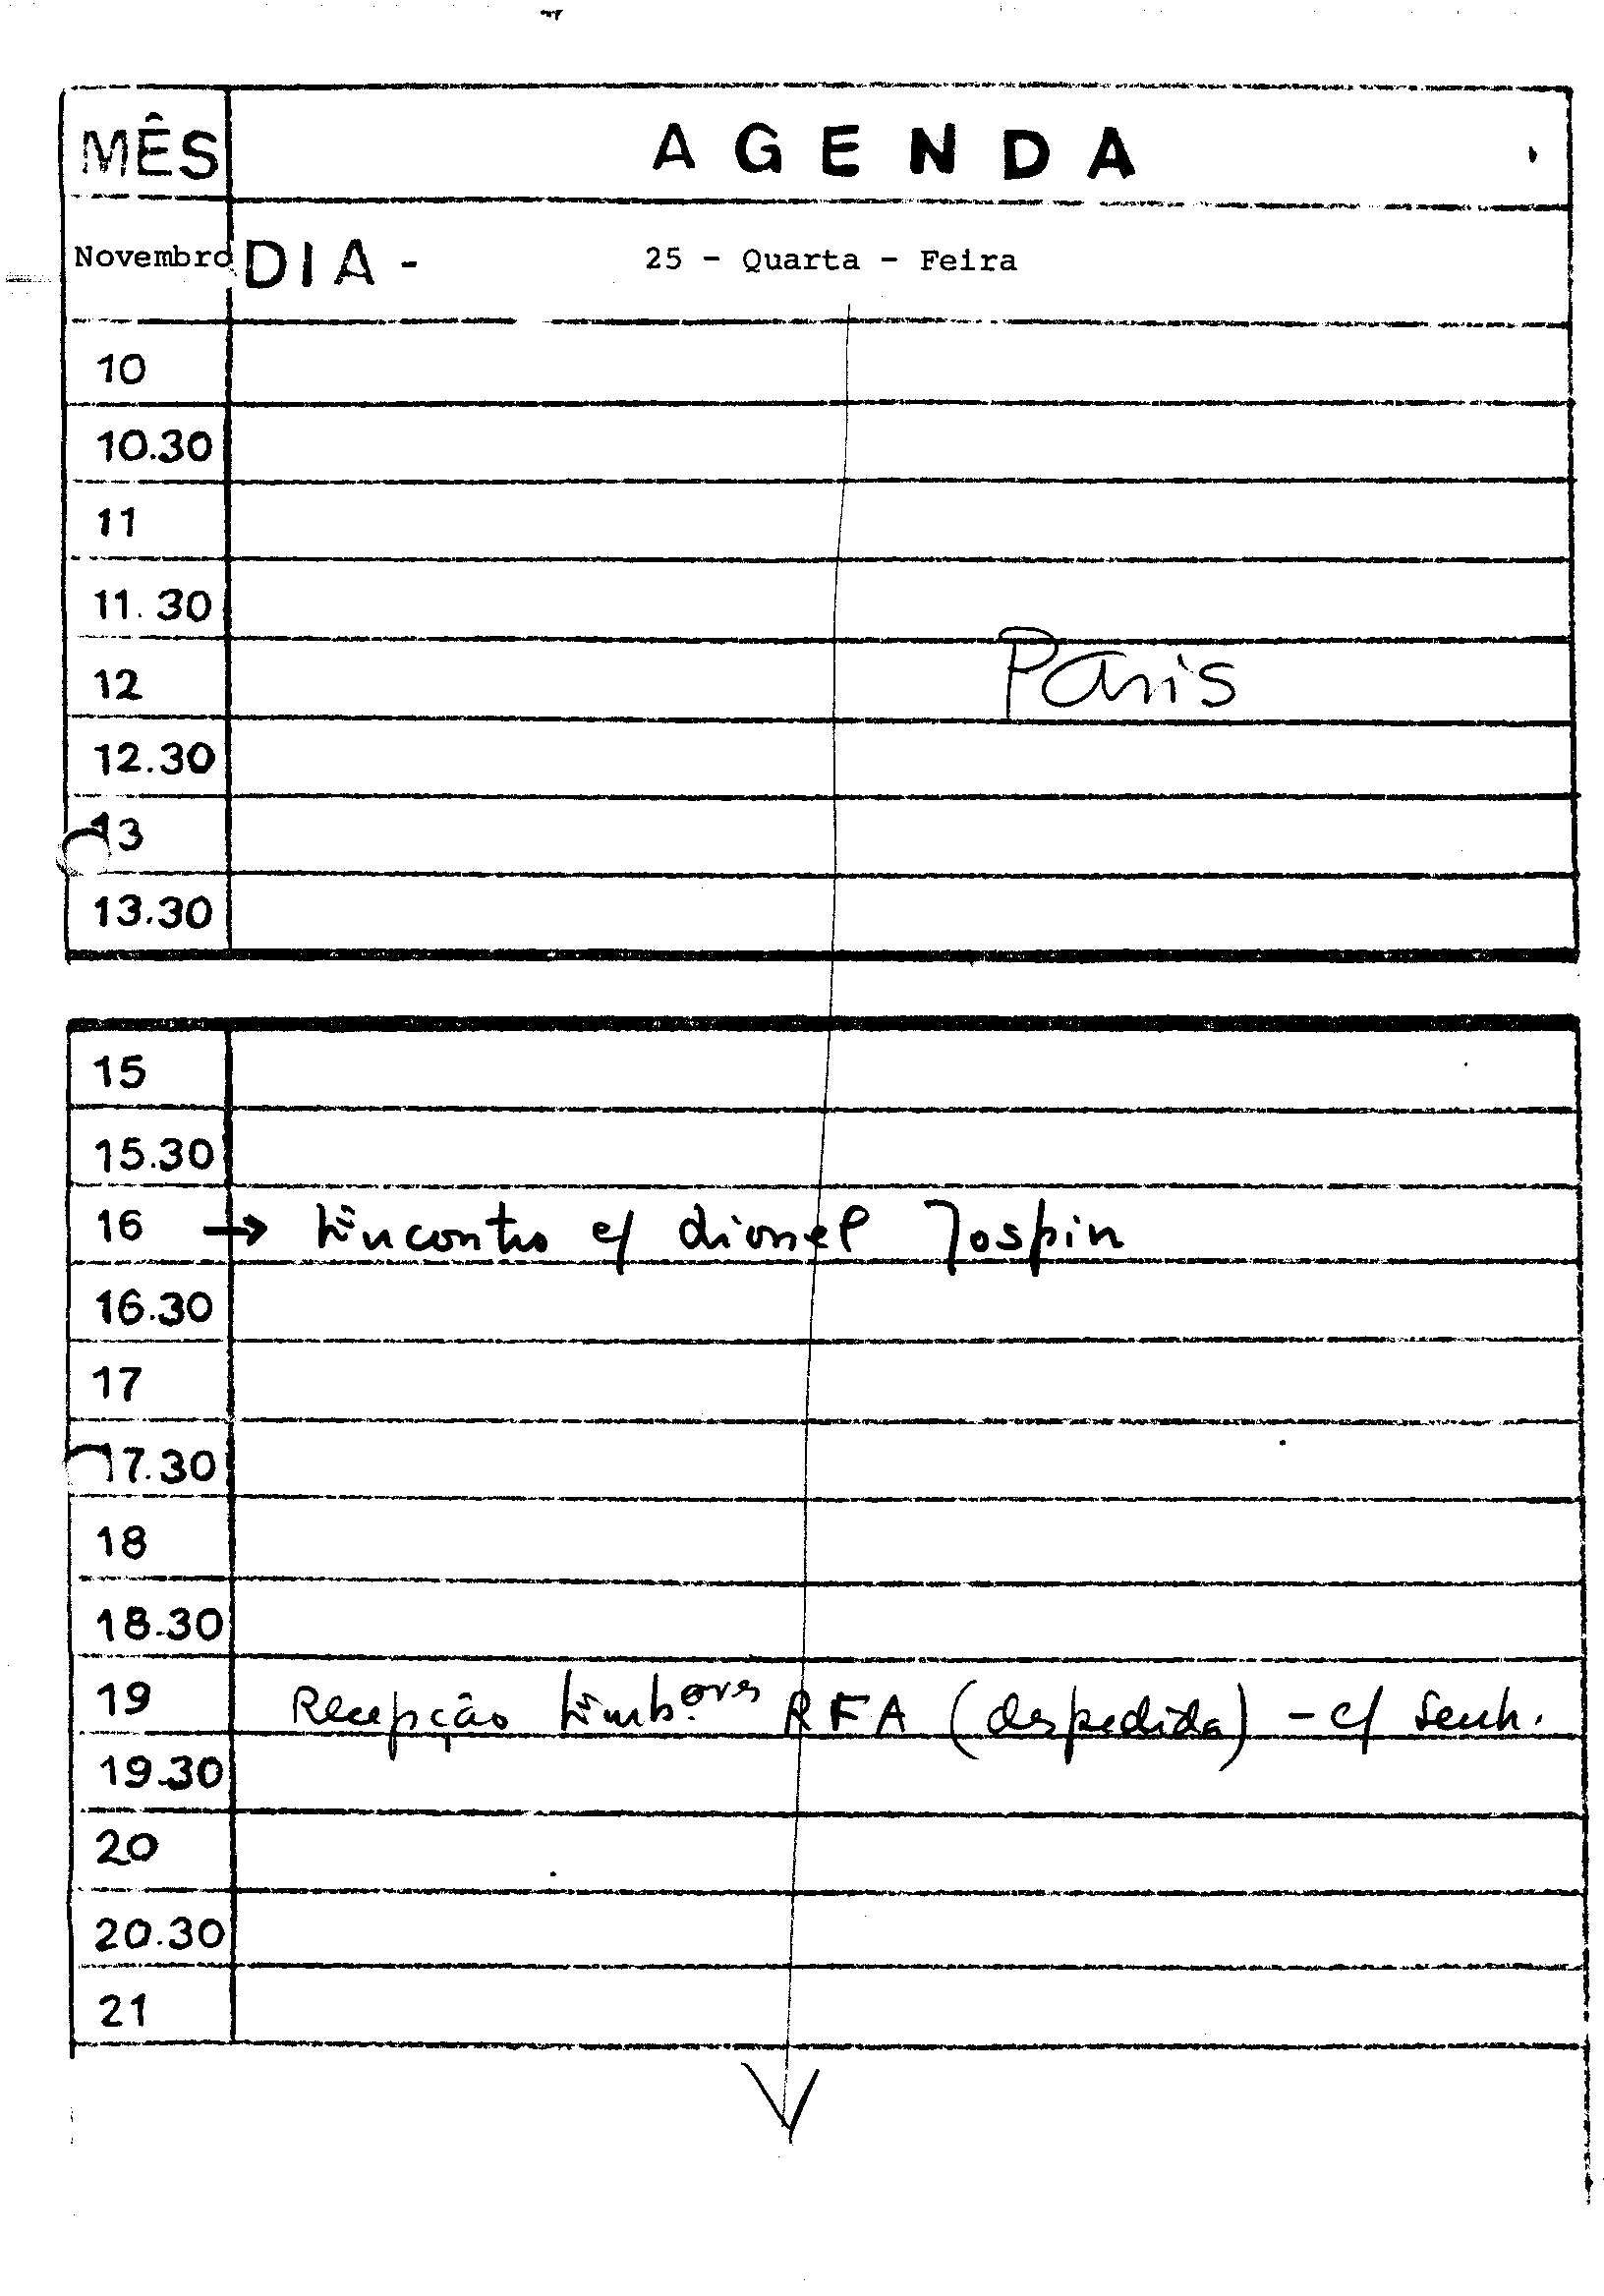 MÊS AGENDA
Novembro DIA - 25 - Quarta - Feira
10
10.30
11
11.30
12 Paris
12.30
13
13.30
15
15.30
16 → Encontro c/ Lionel Jospin
16.30
17
17.30
18
18.30
19 Recepção Emb.ores RFA (despedida) - c/ senh.
19.30
20
20.30
21